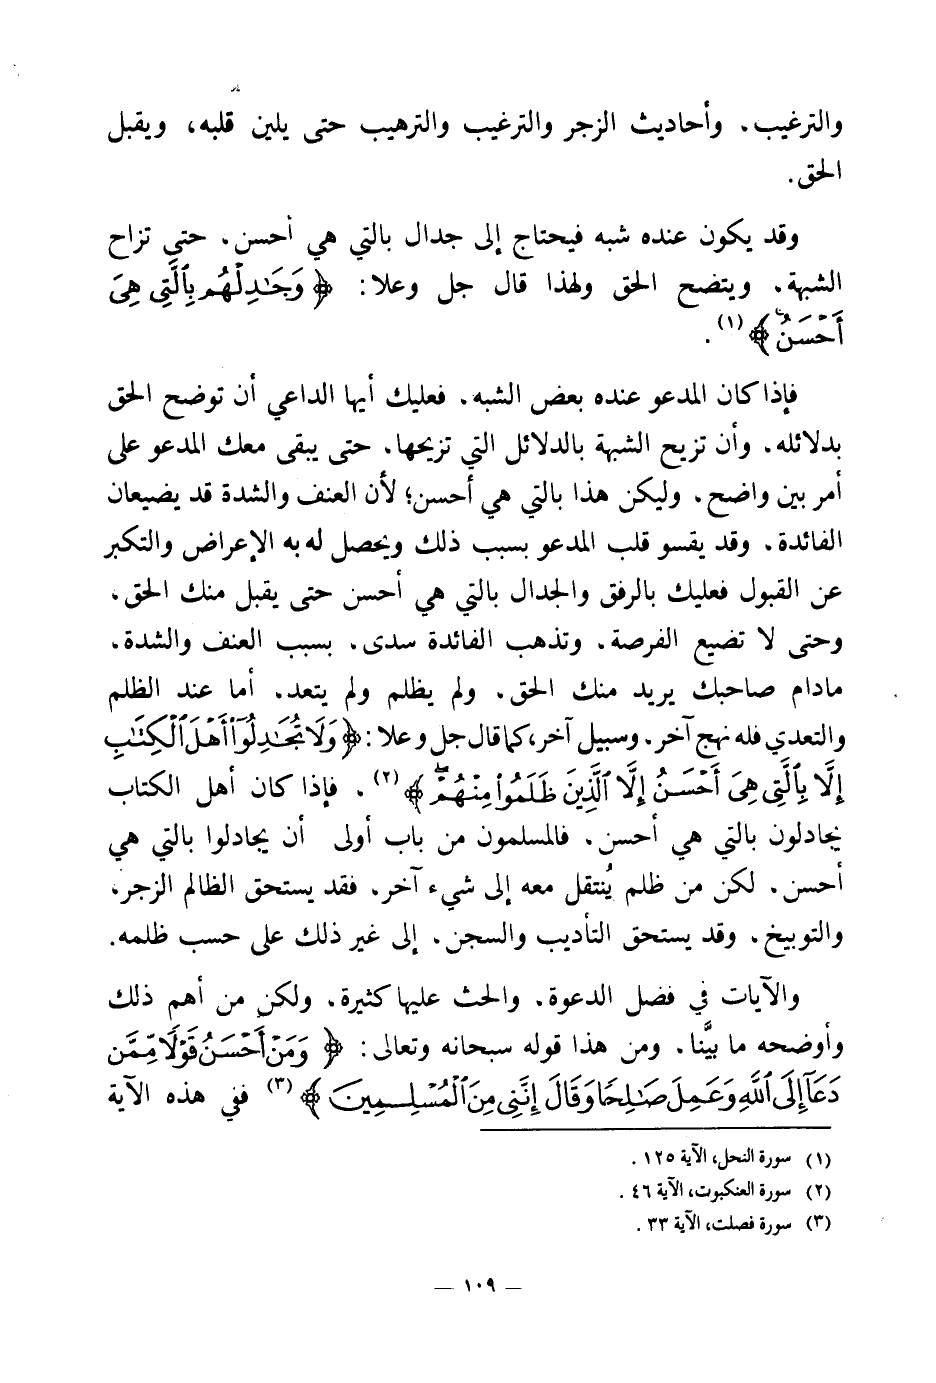 والترغيب. وأحاديث الزجر والترغيب والترهيب حتى يلين قلبه، ويقبل
الحق.
وقد يكون عنده شبه فيحتاج إلى جدال بالتي هي أحسن. حتى تزاح
الشبهة. ويتضح الحق ولهذا قال جل وعلا: ﴿ وَجَٰدِلْهُم بِٱلَّتِى هِىَ
أَحْسَنُ ﴾ (١).
فإذا كان المدعو عنده بعض الشبه. فعليك أيها الداعي أن توضح الحق
بدلائله. وأن تزيح الشبهة بالدلائل التي تزيحها. حتى يبقى معك المدعو على
أمر بين واضح. وليكن هذا بالتي هي أحسن؛ لأن العنف والشدة قد يضيعان
الفائدة. وقد يقسو قلب المدعو بسبب ذلك ويحصل له به الإعراض والتكبر
عن القبول فعليك بالرفق والجدال بالتي هي أحسن حتى يقبل منك الحق،
وحتى لا تضيع الفرصة. وتذهب الفائدة سدى. بسبب العنف والشدة،
مادام صاحبك يريد منك الحق. ولم يظلم ولم يتعد. أما عند الظلم
والتعدي فله نهج آخر. وسبيل آخر، كما قال جل وعلا: ﴿ وَلَا تُجَٰدِلُوٓا۟ أَهْلَ ٱلْكِتَٰبِ
إِلَّا بِٱلَّتِى هِىَ أَحْسَنُ إِلَّا ٱلَّذِينَ ظَلَمُوا۟ مِنْهُمْ ۖ ﴾ (٢). فإذا كان أهل الكتاب
يجادلون بالتي هي أحسن. فالمسلمون من باب أولى أن يجادلوا بالتي هي
أحسن. لكن من ظلم يُنتقل معه إلى شيء آخر. فقد يستحق الظالم الزجر،
والتوبيخ. وقد يستحق التأديب والسجن. إلى غير ذلك على حسب ظلمه.
والآيات في فضل الدعوة. والحث عليها كثيرة. ولكن من أهم ذلك
وأوضحه ما بيَّنا. ومن هذا قوله سبحانه وتعالى: ﴿ وَمَنْ أَحْسَنُ قَوْلًا مِّمَّن
دَعَآ إِلَى ٱللَّهِ وَعَمِلَ صَٰلِحًا وَقَالَ إِنَّنِى مِنَ ٱلْمُسْلِمِينَ ﴾ (٣) ففي هذه الآية
(١) سورة النحل، الآية ١٢٥.
(٢) سورة العنكبوت، الآية ٤٦.
(٣) سورة فصلت، الآية ٣٣.
— ١٠٩ —